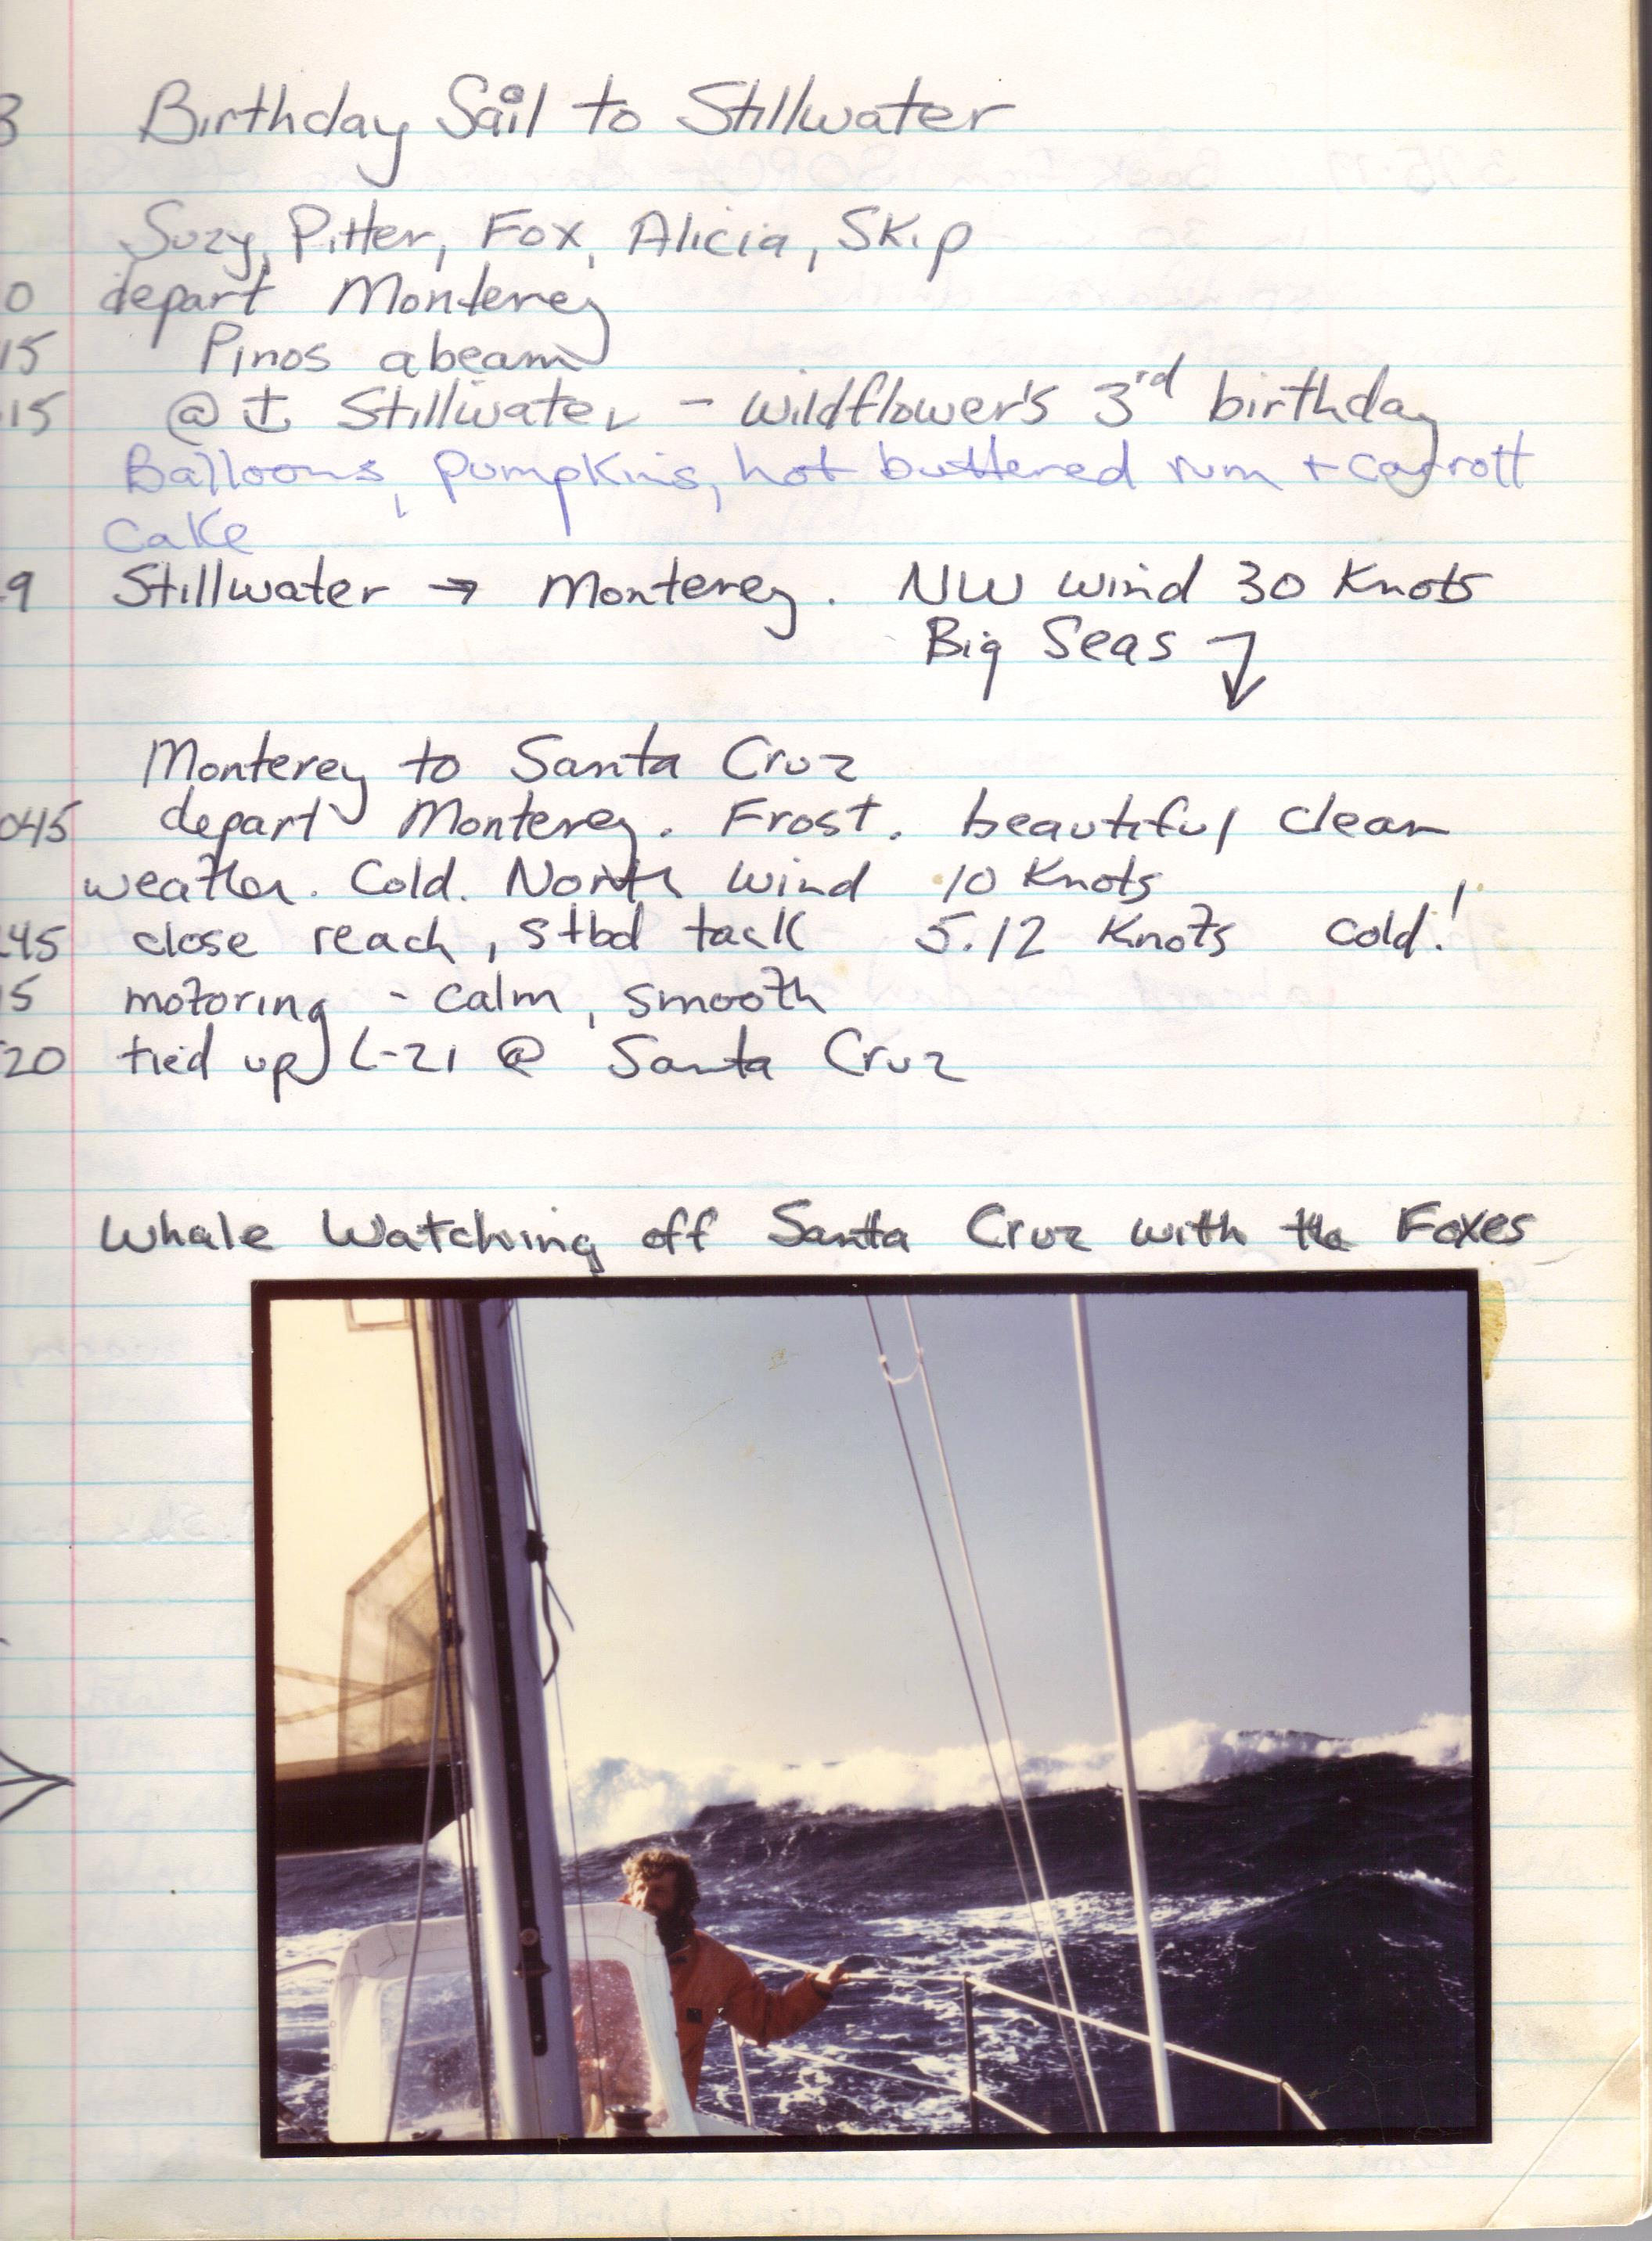 3 Birthday Sail to Stillwater
Suzy, Pitter, Fox, Alicia, Skip
0 depart Monterey
15 Pinos abeam
15 @ ⚓ Stillwater - Wildflower's 3rd birthday
Balloons, pumpkins, hot buttered rum + carrott
cake
9 Stillwater → Monterey. NW wind 30 Knots
Big Seas ↴
Monterey to Santa Cruz
045 depart Monterey. Frost. beautiful clear
weather. Cold. North wind 10 Knots
45 close reach, stbd tack 5.12 Knots cold!
5 motoring - calm, smooth
20 tied up L-21 @ Santa Cruz
Whale Watching off Santa Cruz with the Foxes